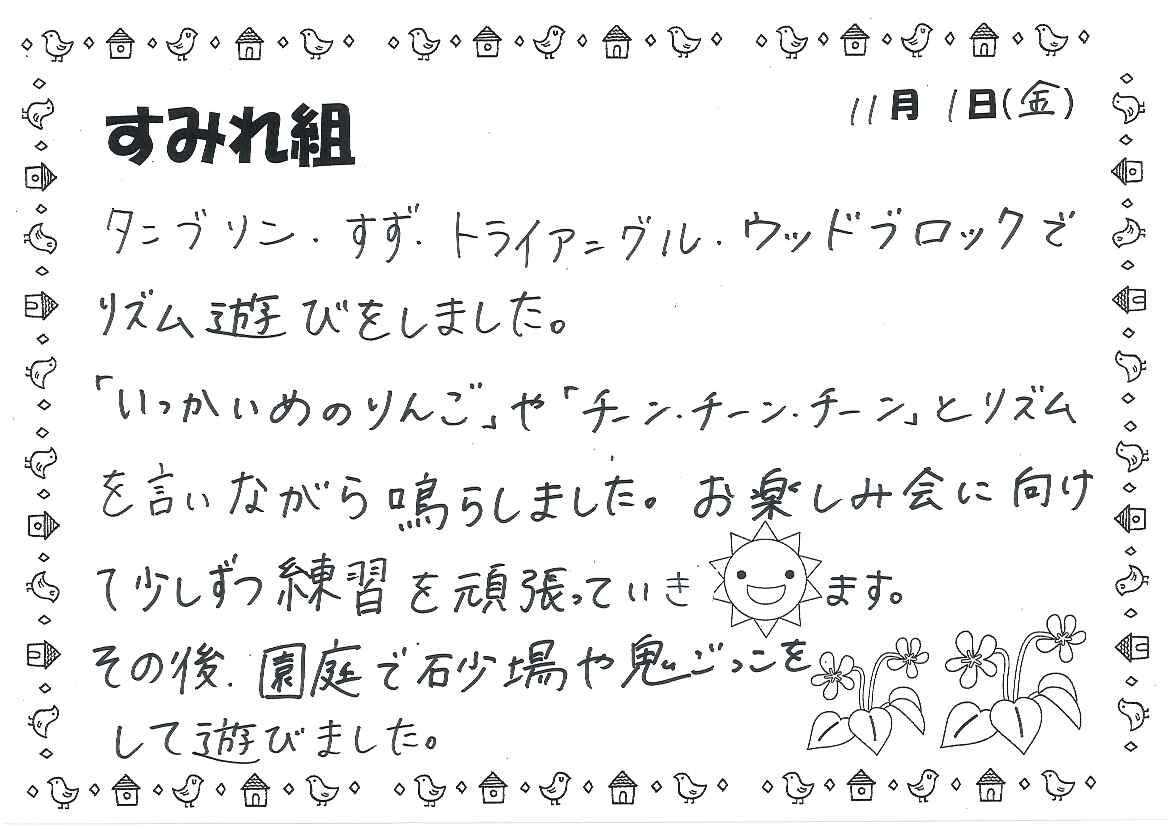 すみれ組
11月1日(金)
タンブリン.すず.トライアングル.ウッドブロックで
リズム遊びをしました。
「いっかいめのりんご」や「チーン.チーン.チーン」とリズム
を言いながら鳴らしました。お楽しみ会に向け
て少しずつ練習を頑張っていきます。
その後.園庭で石少場や鬼ごっこを
して遊びました。